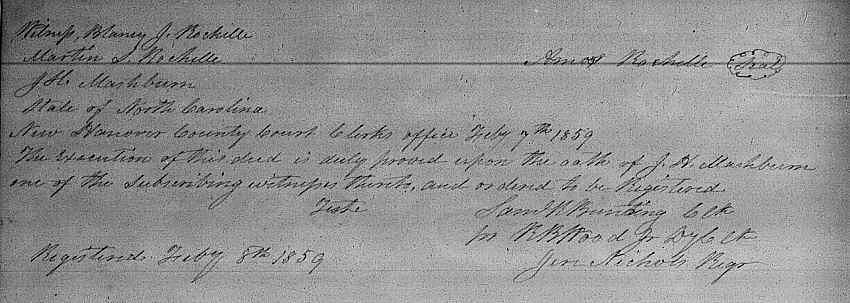 Witness, Blaney J. Rochille
Martin S. Rochille
Amos Rochille (Seal)
J H. Mashburn
State of North Carolina
New Hanover County Court Clerks office Feby 7th 1859
The Execution of this deed is duly proved upon the oath of J. H. Mashburn
one of the Subscribing witnesses thereto, and ordered to be Registered
Teste Saml R Bunting Clk
pr R B Wood Jr Dy Clk
Registered Feby 8th 1859 Jere Nichols Regr